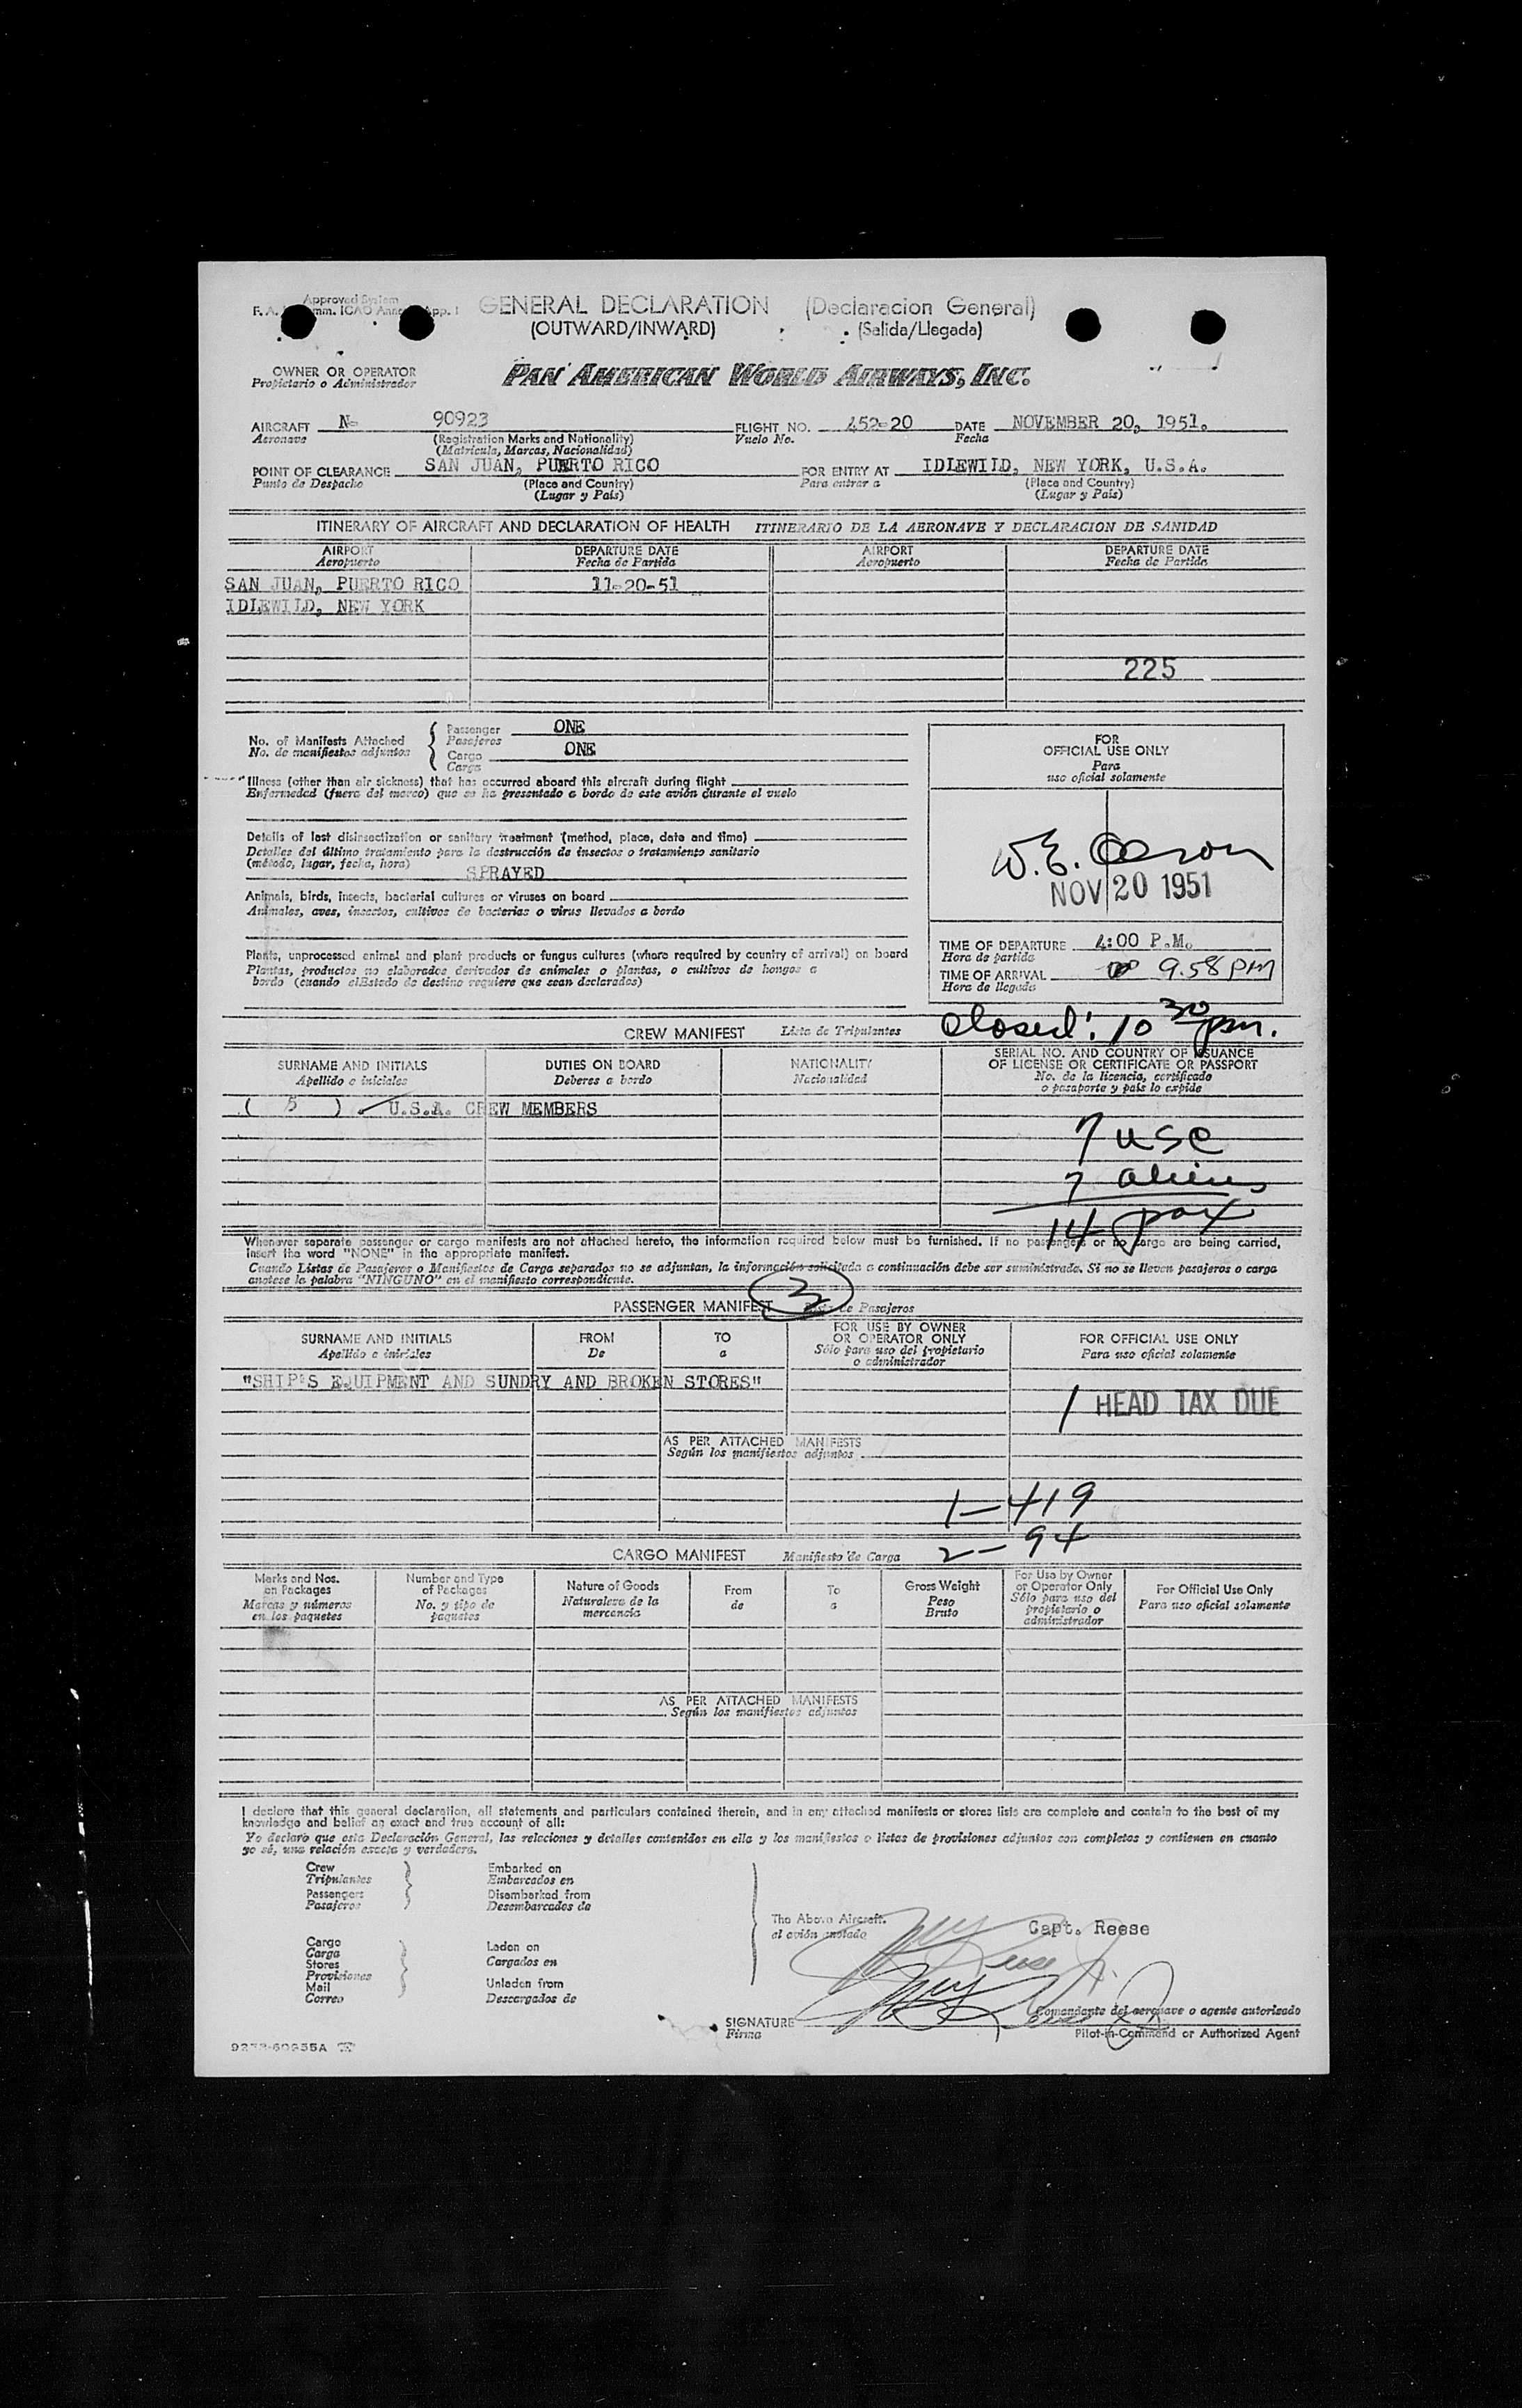 Approved System
GENERAL DECLARATION (Declaracion General)
(OUTWARD/INWARD) (Salida/Llegada)
OWNER OR OPERATOR PAN AMERICAN WORLD AIRWAYS, INC.
Propietario o Administrador
AIRCRAFT N- 90923 FLIGHT NO. 452-20 DATE NOVEMBER 20, 1951.
Aeronave (Registration Marks and Nationality) Vuelo No. Fecha
(Matricula, Marcas, Nacionalidad)
POINT OF CLEARANCE SAN JUAN, PUERTO RICO FOR ENTRY AT IDLEWILD, NEW YORK, U.S.A.
Punto de Despacho (Place and Country) Para entrar a (Place and Country)
(Lugar y País) (Lugar y País)
ITINERARY OF AIRCRAFT AND DECLARATION OF HEALTH ITINERARIO DE LA AERONAVE Y DECLARACION DE SANIDAD
AIRPORT DEPARTURE DATE AIRPORT DEPARTURE DATE
Aeropuerto Fecha de Partida Aeropuerto Fecha de Partida
SAN JUAN, PUERTO RICO 11-20-51
IDLEWILD, NEW YORK
225
No. of Manifests Attached Passenger ONE
No. de manifiestos adjuntos Pasajeros
Cargo ONE
Carga
FOR
OFFICIAL USE ONLY
Para
uso oficial solamente
Illness (other than air sickness) that has occurred aboard this aircraft during flight
Enfermedad (fuera del mareo) que se ha presentado a bordo de este avión durante el vuelo
Details of last disinsectization or sanitary treatment (method, place, date and time)
Detalles del último tratamiento para la destrucción de insectos o tratamiento sanitario
(método, lugar, fecha, hora)
SPRAYED
W.E.
NOV 20 1951
Animals, birds, insects, bacterial cultures or viruses on board
Animales, aves, insectos, cultivos de bacterias o virus llevados a bordo
Plants, unprocessed animal and plant products or fungus cultures (where required by country of arrival) on board
Plantas, productos no elaborados derivados de animales o plantas, o cultivos de hongos a
bordo (cuando el Estado de destino requiere que sean declarados)
TIME OF DEPARTURE 4:00 P.M.
Hora de partida
TIME OF ARRIVAL 9.58 PM
Hora de llegada
Closed: 10 30 pm.
CREW MANIFEST Lista de Tripulantes
SURNAME AND INITIALS DUTIES ON BOARD NATIONALITY SERIAL NO. AND COUNTRY OF ISSUANCE
OF LICENSE OR CERTIFICATE OR PASSPORT
Apellido e iniciales Deberes a bordo Nacionalidad No. de la licencia, certificado
o pasaporte y país lo expide
( 5 ) U.S.A. CREW MEMBERS
7 usc
7 aliens
14 pax
Whenever separate passenger or cargo manifests are not attached hereto, the information required below must be furnished. If no passengers or no cargo are being carried,
insert the word "NONE" in the appropriate manifest.
Cuando Listas de Pasajeros o Manifiestos de Carga separados no se adjuntan, la información solicitada a continuación debe ser suministrada. Si no se lleven pasajeros o carga
anotese la palabra "NINGUNO" en el manifiesto correspondiente.
PASSENGER MANIFEST de Pasajeros
SURNAME AND INITIALS FROM TO FOR USE BY OWNER
OR OPERATOR ONLY FOR OFFICIAL USE ONLY
Apellido e iniciales De a Sólo para uso del propietario
o administrador Para uso oficial solamente
"SHIP'S EQUIPMENT AND SUNDRY AND BROKEN STORES"
1 HEAD TAX DUE
AS PER ATTACHED MANIFESTS
Según los manifiestos adjuntos
1-419
2-94
CARGO MANIFEST Manifiesto de Carga
Marks and Nos. on Packages Number and Type of Packages Nature of Goods From To Gross Weight For Use by Owner or Operator Only For Official Use Only
Marcas y números en los paquetes No. y tipo de paquetes Naturaleza de la mercancia de a Peso Bruto Sólo para uso del propietario o administrador Para uso oficial solamente
AS PER ATTACHED MANIFESTS
Según los manifiestos adjuntos
I declare that this general declaration, all statements and particulars contained therein, and in any attached manifests or stores lists are complete and contain to the best of my
knowledge and belief an exact and true account of all:
Yo declaro que esta Declaración General, las relaciones y detalles contenidos en ella y los manifiestos o listas de provisiones adjuntos son completos y contienen en cuanto
yo sé, una relación exacta y verdadera.
Crew Embarked on
Tripulantes Embarcados en
Passengers Disembarked from
Pasajeros Desembarcados de
The Above Aircraft. Capt. Reese
el avión anotado
Cargo Laden on
Carga Cargados en
Stores
Provisiones
Mail Unladen from
Correo Descargados de
Comandante del aeronave o agente autorizado
SIGNATURE
Firma
Pilot-in-Command or Authorized Agent